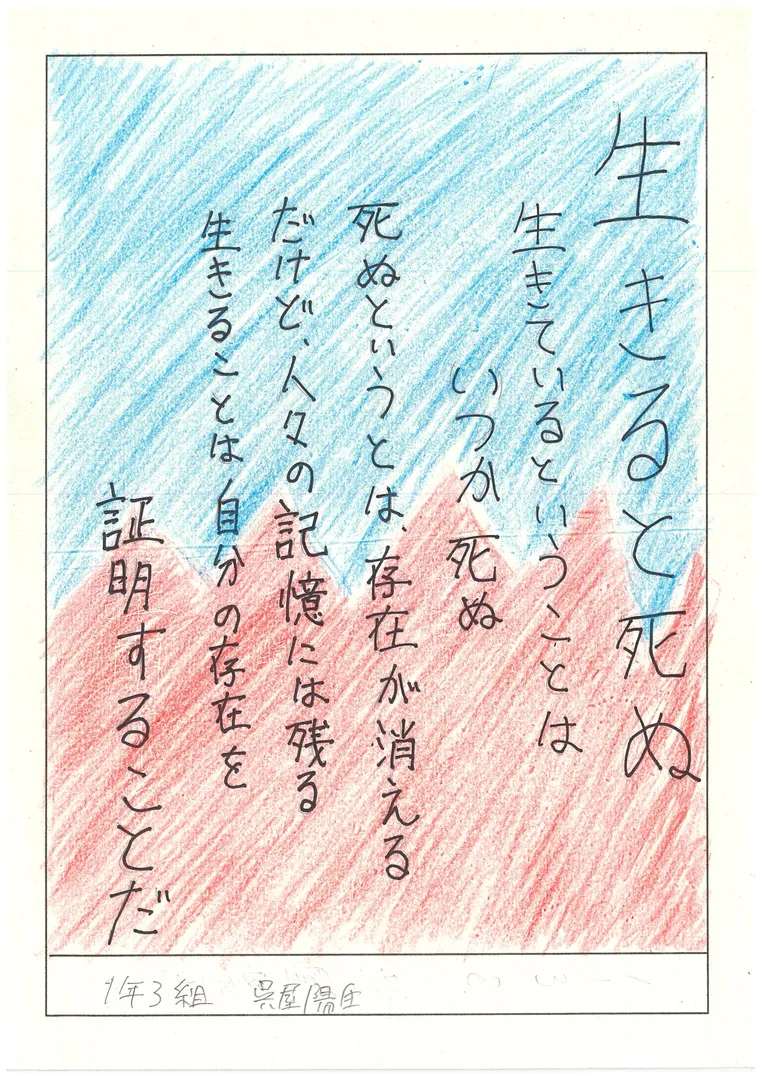 生きると死ぬ
生きているということは
いつか死ぬ
死ぬというとは、存在が消える
だけど、人々の記憶には残る
生きることは自分の存在を
証明することだ
1年3組 呉屋